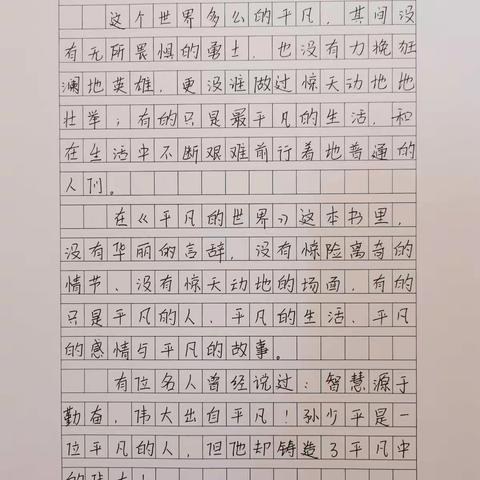 这个世界多么的平凡，其间没
有无所畏惧的勇士，也没有力挽狂
澜地英雄，更没谁做过惊天动地地
壮举；有的只是最平凡的生活，和
在生活中不断艰难前行着地普通的
人们。
在《平凡的世界》这本书里，
没有华丽的言辞，没有惊险离奇的
情节、没有惊天动地的场面，有的
只是平凡的人、平凡的生活、平凡
的感情与平凡的故事。
有位名人曾经说过：智慧源于
勤奋，伟大出自平凡！孙少平是一
位平凡的人，但他却铸造了平凡中
的伟大！